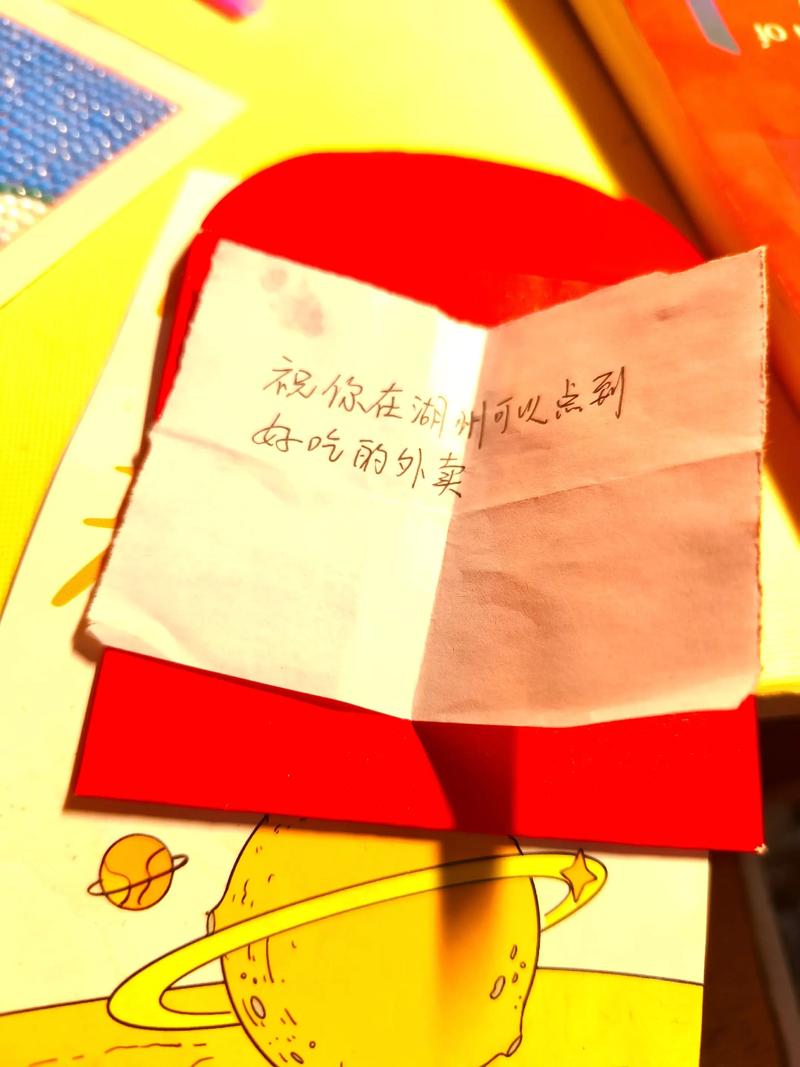 祝你在湖州可以点到
好吃的外卖
jo